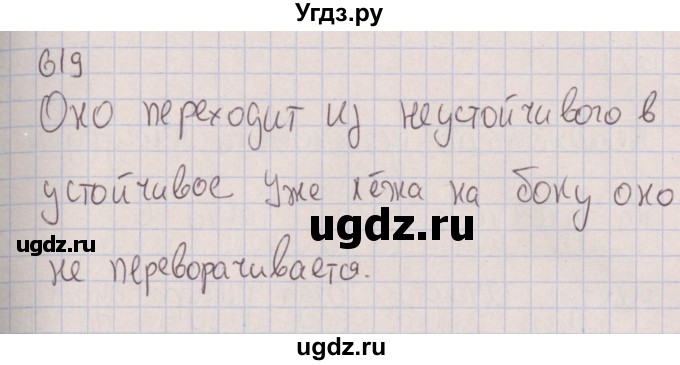 Угдз.ру
619
Оно переходит из неустойчивого в
устойчивое уже лёжа на боку оно
ugdz.ru
ugdz.ru
ugdz.ru
не переворачивается.
ugdz.ru
ugdz.ru